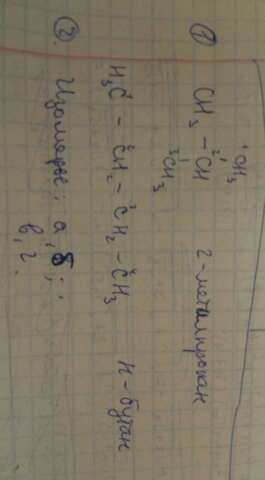 ①
¹CH₃
CH₃ – ²CH
³CH₃
2-метилпропан
H₃C – CH₂ – CH₂ – CH₃
н-бутан
②
Изомеры: а, б;
в, г.